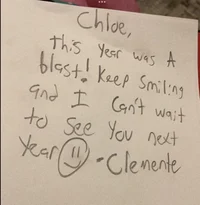 Chloe,
this Year was A
blast! Keep smiling
and I can't wait
to see you next
Year - Clemente